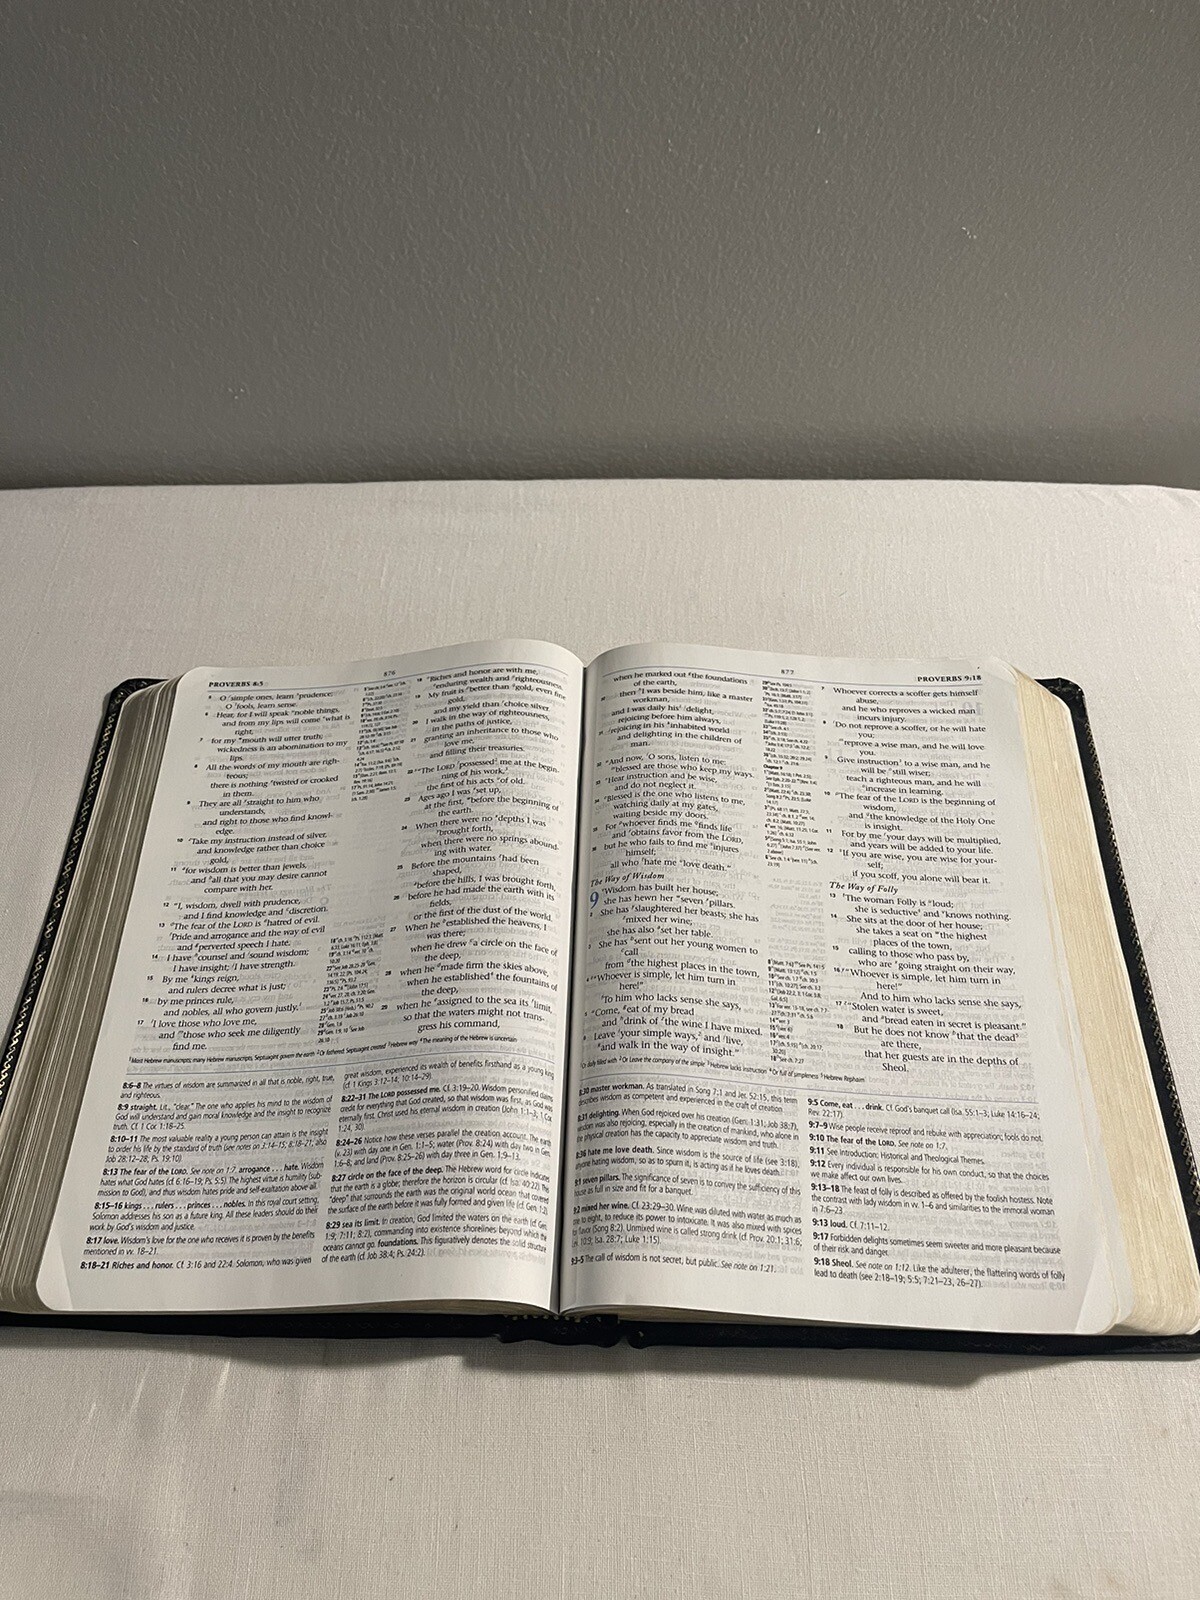 PROVERBS 8:5
876
O simple ones, learn prudence;
O fools, learn sense.
6 Hear, for I will speak noble things,
and from my lips will come what is
right,
7 for my mouth will utter truth;
wickedness is an abomination to my
lips.
8 All the words of my mouth are righ-
teous;
there is nothing twisted or crooked
in them.
9 They are all straight to him who
understands,
and right to those who find knowl-
edge.
10 Take my instruction instead of silver,
and knowledge rather than choice
gold,
11 for wisdom is better than jewels,
and all that you may desire cannot
compare with her.
12 "I, wisdom, dwell with prudence,
and I find knowledge and discretion.
13 The fear of the LORD is hatred of evil.
Pride and arrogance and the way of evil
and perverted speech I hate.
14 I have counsel and sound wisdom;
I have insight; I have strength.
15 By me kings reign,
and rulers decree what is just;
16 by me princes rule,
and nobles, all who govern justly.
17 I love those who love me,
and those who seek me diligently
find me.
18 Riches and honor are with me,
enduring wealth and righteousness.
19 My fruit is better than gold, even fine
gold,
and my yield than choice silver.
20 I walk in the way of righteousness,
in the paths of justice,
21 granting an inheritance to those who
love me,
and filling their treasuries.
22 "The LORD possessed me at the begin-
ning of his work,
the first of his acts of old.
23 Ages ago I was set up,
at the first, before the beginning of
the earth.
24 When there were no depths I was
brought forth,
when there were no springs abound-
ing with water.
25 Before the mountains had been
shaped,
before the hills, I was brought forth,
26 before he had made the earth with its
fields,
or the first of the dust of the world.
27 When he established the heavens, I
was there;
when he drew a circle on the face of
the deep,
28 when he made firm the skies above,
when he established the fountains of
the deep,
29 when he assigned to the sea its limit,
so that the waters might not trans-
gress his command,
Most Hebrew manuscripts; many Hebrew manuscripts, Septuagint govern the earth Or fathered; Septuagint created Hebrew way The meaning of the Hebrew is uncertain
8:6–8 The virtues of wisdom are summarized in all that is noble, right, true,
and righteous.
8:9 straight. Lit., "clear." The one who applies his mind to the wisdom of
God will understand and gain moral knowledge and the insight to recognize
truth. Cf. 1 Cor. 1:18–25.
8:10–11 The most valuable reality a young person can attain is the insight
to order his life by the standard of truth (see notes on 3:14–15; 8:18–21; also
Job 28:12–28; Ps. 19:10)
8:13 The fear of the LORD. See note on 1:7. arrogance . . . hate. Wisdom
hates what God hates (cf. 6:16–19; Ps. 5:5). The highest virtue is humility (sub-
mission to God), and thus wisdom hates pride and self-exaltation above all.
8:15–16 kings . . . rulers . . . princes . . . nobles. In this royal court setting,
Solomon addresses his son as a future king. All these leaders should do their
work by God's wisdom and justice.
8:17 love. Wisdom's love for the one who receives it is proven by the benefits
mentioned in vv. 18–21.
8:18–21 Riches and honor. Cf. 3:16 and 22:4. Solomon, who was given
great wisdom, experienced its wealth of benefits firsthand as a young king
(cf. 1 Kings 3:12–14; 10:14–29).
8:22–31 The LORD possessed me. Cf. 3:19–20. Wisdom personified claims
credit for everything that God created, so that wisdom was first, as God was
eternally first. Christ used his eternal wisdom in creation (John 1:1–3; 1 Cor.
1:24, 30).
8:24–26 Notice how these verses parallel the creation account. The earth
(v. 23) with day one in Gen. 1:1–5; water (Prov. 8:24) with day two in Gen.
1:6–8; and land (Prov. 8:25–26) with day three in Gen. 1:9–13.
8:27 circle on the face of the deep. The Hebrew word for circle indicates
that the earth is a globe; therefore the horizon is circular (cf. Isa. 40:22). This
"deep" that surrounds the earth was the original world ocean that covered
the surface of the earth before it was fully formed and given life (cf. Gen. 1:2).
8:29 sea its limit. In creation, God limited the waters on the earth (cf. Gen.
1:9; 7:11; 8:2), commanding into existence shorelines beyond which the
oceans cannot go. foundations. This figuratively denotes the solid structure
of the earth (cf. Job 38:4; Ps. 24:2).
877
PROVERBS 9:18
when he marked out the foundations
of the earth,
30 then I was beside him, like a master
workman,
and I was daily his delight,
rejoicing before him always,
31 rejoicing in his inhabited world
and delighting in the children of
man.
32 "And now, O sons, listen to me:
blessed are those who keep my ways.
33 Hear instruction and be wise,
and do not neglect it.
34 Blessed is the one who listens to me,
watching daily at my gates,
waiting beside my doors.
35 For whoever finds me finds life
and obtains favor from the LORD,
36 but he who fails to find me injures
himself;
all who hate me love death."
The Way of Wisdom
9 Wisdom has built her house;
she has hewn her seven pillars.
2 She has slaughtered her beasts; she has
mixed her wine;
she has also set her table.
3 She has sent out her young women to
call
from the highest places in the town,
4 "Whoever is simple, let him turn in
here!"
To him who lacks sense she says,
5 "Come, eat of my bread
and drink of the wine I have mixed.
6 Leave your simple ways, and live,
and walk in the way of insight."
7 Whoever corrects a scoffer gets himself
abuse,
and he who reproves a wicked man
incurs injury.
8 Do not reprove a scoffer, or he will hate
you;
reprove a wise man, and he will love
you.
9 Give instruction to a wise man, and he
will be still wiser;
teach a righteous man, and he will
increase in learning.
10 The fear of the LORD is the beginning of
wisdom,
and the knowledge of the Holy One
is insight.
11 For by me your days will be multiplied,
and years will be added to your life.
12 If you are wise, you are wise for your-
self;
if you scoff, you alone will bear it.
The Way of Folly
13 The woman Folly is loud;
she is seductive and knows nothing.
14 She sits at the door of her house;
she takes a seat on the highest
places of the town,
15 calling to those who pass by,
who are going straight on their way,
16 "Whoever is simple, let him turn in
here!"
And to him who lacks sense she says,
17 "Stolen water is sweet,
and bread eaten in secret is pleasant."
18 But he does not know that the dead
are there,
that her guests are in the depths of
Sheol.
Or daily filled with Or Leave the company of the simple Hebrew lacks instruction Or full of simpleness Hebrew Rephaim
8:30 master workman. As translated in Song 7:1 and Jer. 52:15, this term
describes wisdom as competent and experienced in the craft of creation
8:31 delighting. When God rejoiced over his creation (Gen. 1:31; Job 38:7),
wisdom was also rejoicing, especially in the creation of mankind, who alone in
the physical creation has the capacity to appreciate wisdom and truth.
8:36 hate me love death. Since wisdom is the source of life (see 3:18),
anyone hating wisdom, so as to spurn it, is acting as if he loves death.
9:1 seven pillars. The significance of seven is to convey the sufficiency of this
house as full in size and fit for a banquet.
9:2 mixed her wine. Cf. 23:29–30. Wine was diluted with water as much as
one to eight, to reduce its power to intoxicate. It was also mixed with spices
for flavor (Song 8:2). Unmixed wine is called strong drink (cf. Prov. 20:1; 31:6;
Lev. 10:9; Isa. 28:7; Luke 1:15).
9:3–5 The call of wisdom is not secret, but public. See note on 1:21.
9:5 Come, eat . . . drink. Cf. God's banquet call (Isa. 55:1–3; Luke 14:16–24;
Rev. 22:17).
9:7–9 Wise people receive reproof and rebuke with appreciation; fools do not.
9:10 The fear of the LORD. See note on 1:7.
9:11 See Introduction: Historical and Theological Themes.
9:12 Every individual is responsible for his own conduct, so that the choices
we make affect our own lives.
9:13–18 The feast of folly is described as offered by the foolish hostess. Note
the contrast with lady wisdom in vv. 1–6 and similarities to the immoral woman
in 7:6–23.
9:13 loud. Cf. 7:11–12.
9:17 Forbidden delights sometimes seem sweeter and more pleasant because
of their risk and danger.
9:18 Sheol. See note on 1:12. Like the adulterer, the flattering words of folly
lead to death (see 2:18–19; 5:5; 7:21–23, 26–27).